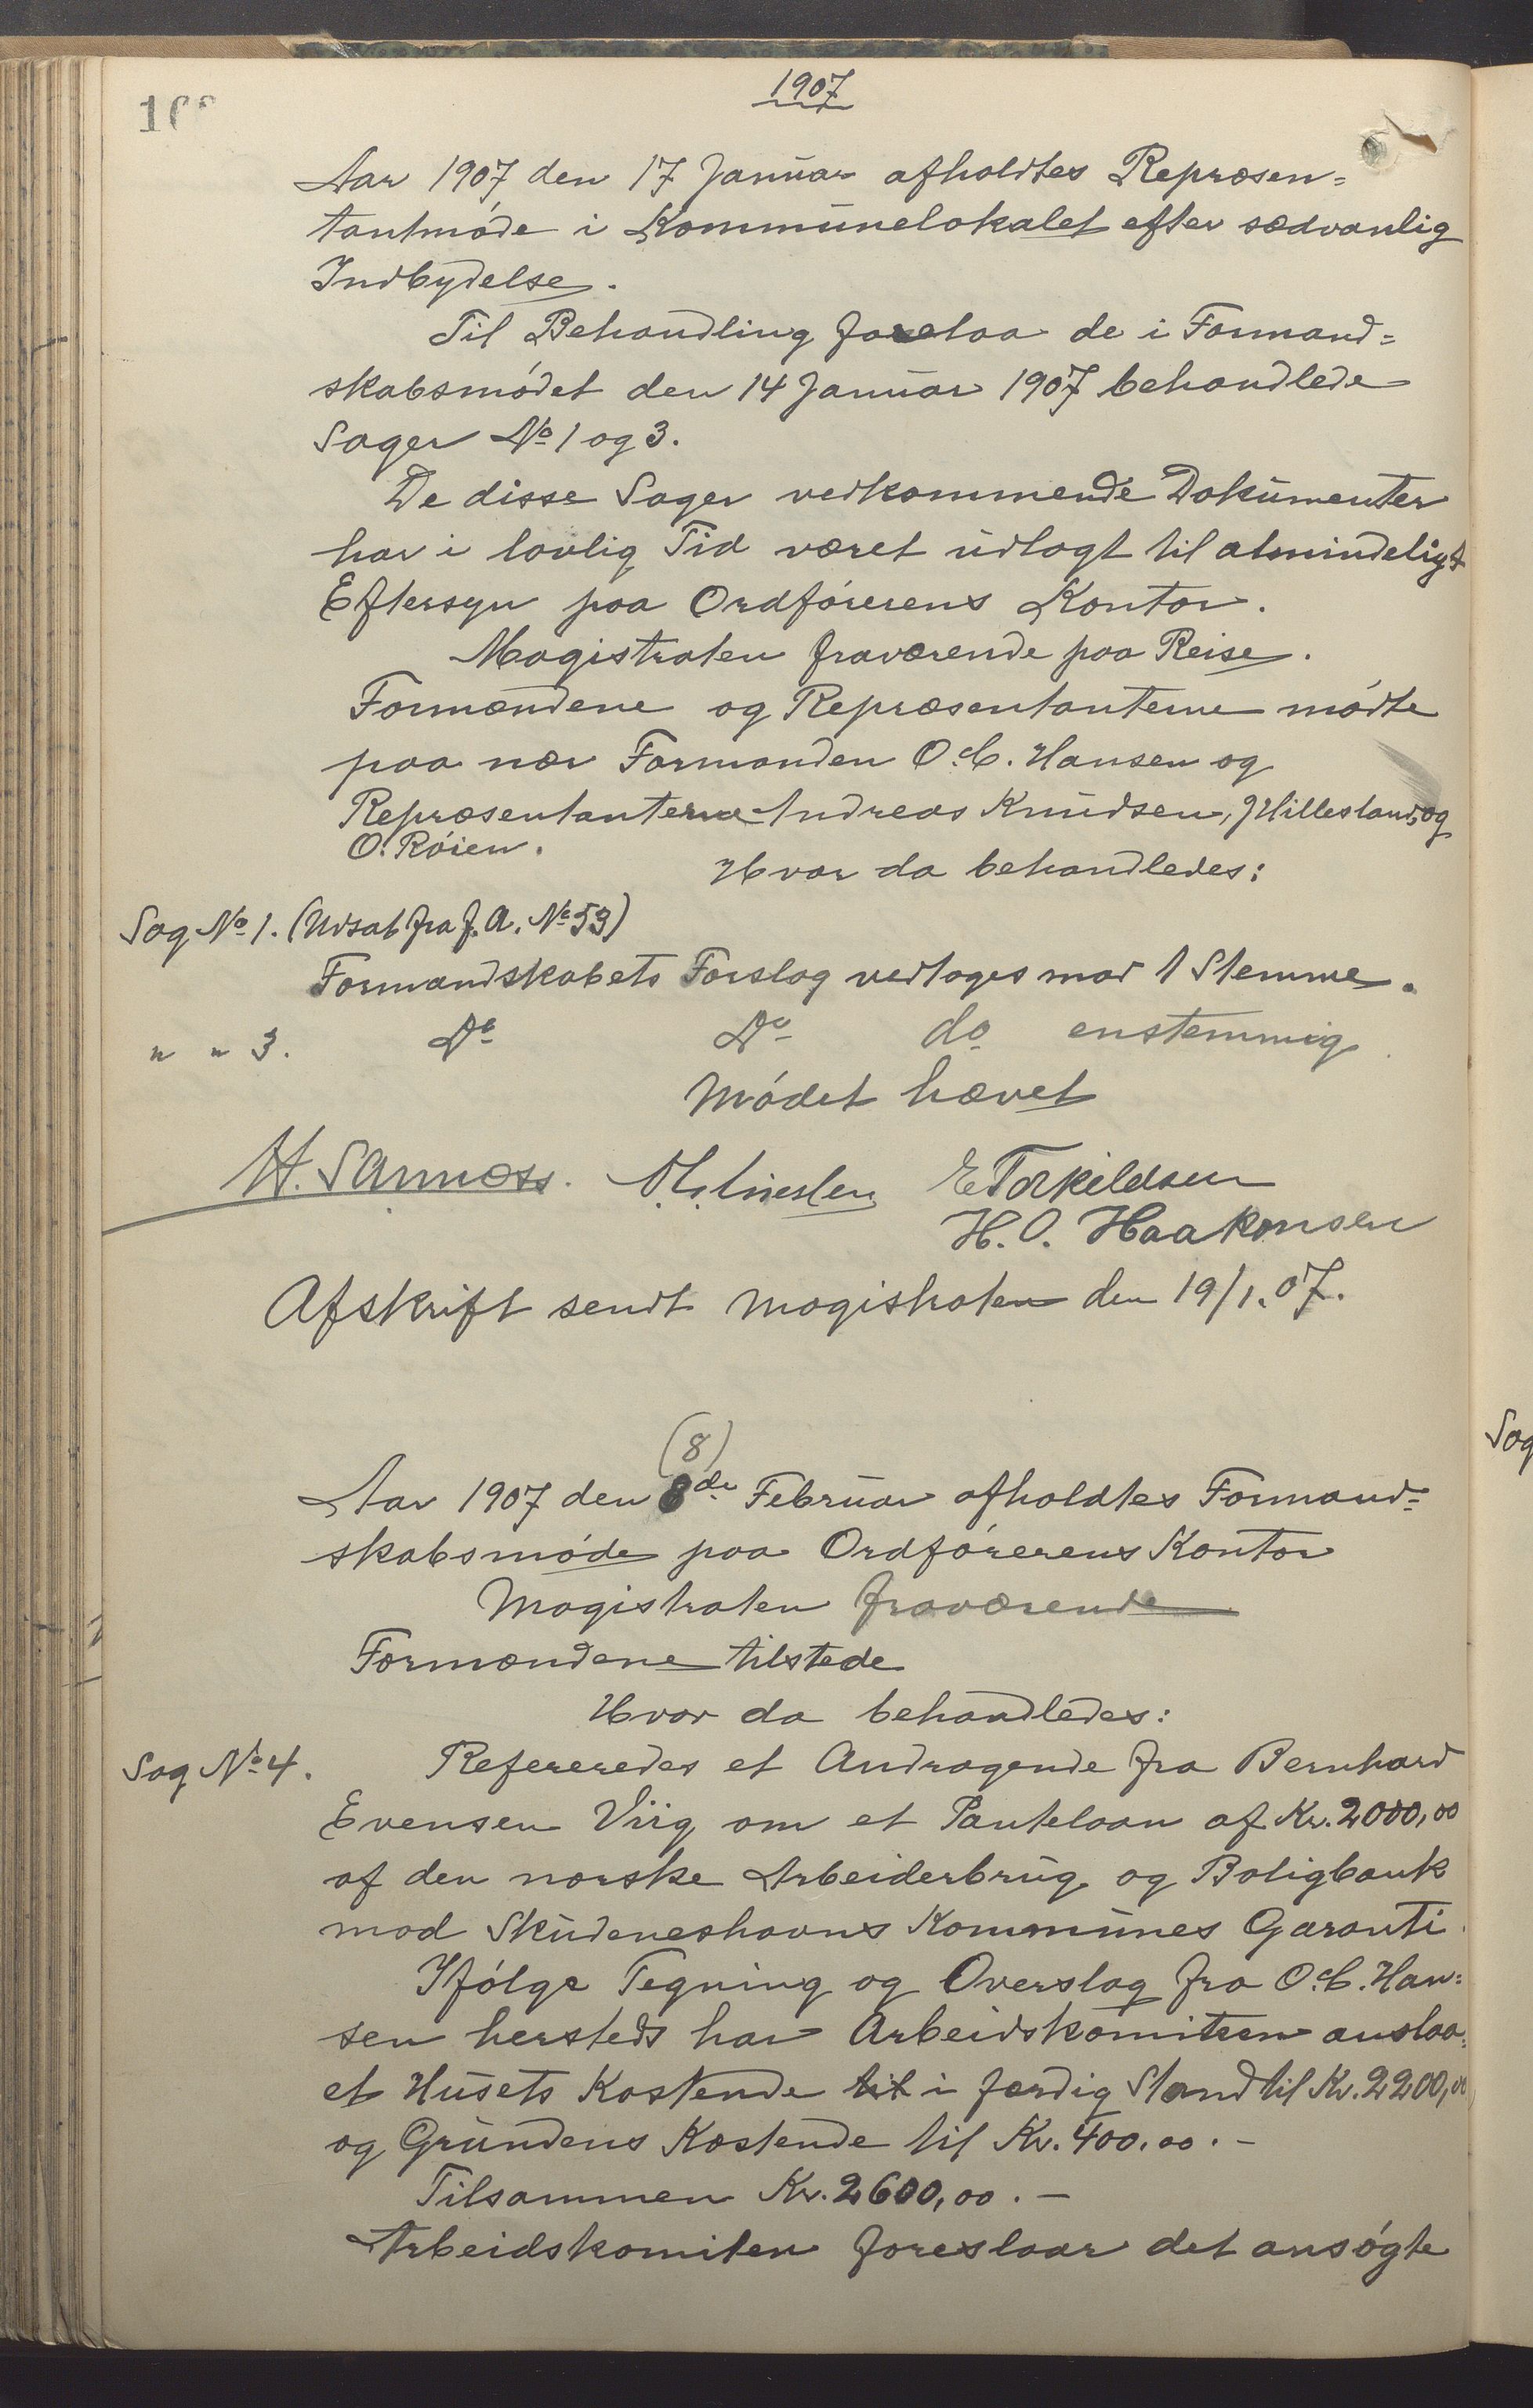 1907
Aar 1907 den 17 Januar afholdtes Repræsen=
tantmøde i Kommunelokalet efter sædvanlig
Indbydelse.
Til Behandling forelaa de i Formand=
skabsmødet den 14 Januar 1907 behandlede
Sager No 1 og 3.
De disse Sager vedkommende Dokumenter
har i lovlig Tid været udlagt til almindeligt
Eftersyn paa Ordførerens Kontor.
Magistraten fraværende paa Reise.
Formændene og Repræsentanterne mødte
paa nær Formanden O. C. Hansen og
Repræsentanterne Andreas Knudsen, J Hillesland, og
O. Røien.
Hvor da behandledes:
Sag No 1. (Udsat fra f. A. No 53)
Formandskabets Forslag vedtoges mod 1 Stemme.
" " 3. Do Do do enstemmig
Mødet hævet
H. Sannæss.
E Torkildsen
H. O. Haakonsen
Afskrift sendt Magistraten den 19/1. 07.
(8)
Aar 1907 den 8de Februar afholdtes Formand=
skabsmøde paa Ordførerens Kontor
Magistraten fraværende
Formændene tilstede
Hvor da behandledes:
Sag No 4. Refereredes et Andragende fra Bernhard
Evensen Viig om et Pantelaan af Kr. 2000,00
af den norske Arbeiderbrug og Boligbank
mod Skudeneshavns Kommunes Garanti.
Ifølge Tegning og Overslag fra O. C. Han=
sen hersteds har Arbeidskomiteen anslaa=
et Husets Kostende til i færdig Stand til Kr. 2200,00
og Grundens Kostende til Kr. 400.00.-
Tilsammen Kr. 2600,00.-
Arbeidskomiteen foreslaar det ansøgte
Sag